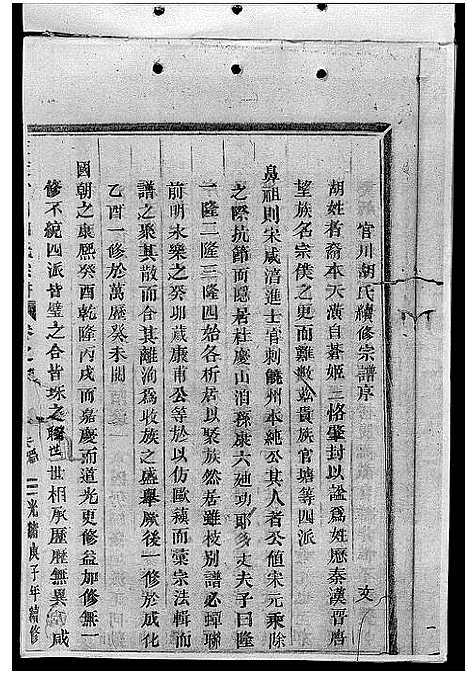 官川胡氏續修宗譜序
文
胡姓者裔本天潢自蒼姬三恪肇封以謚為姓歷秦漢晉唐
望族名宗僕之更而難數於貴族官塘等四派
鼻祖則宋咸淳進士官刺饒州本純公其人者公值宋元乘除
之際抗節而隱居杜慶山洎孫康六廸功郎多丈夫子曰隆
一隆二隆三隆四始各析居以聚族然居雖枝別譜必蟬聯
前明永樂之癸卯歲康甫公等於以仿歐蘓而葉宗法輯而
譜之聚其散而合其離洵爲收族之盛舉厥後一修於成化
乙酉一修於萬歷癸未閱
國朝之康熙癸酉乾隆丙戌而嘉慶而道光更修益加修無一
修不統四派皆璧之合皆珠之聯世世相承歷歷無異咸
卷之
光緒庚子年續修